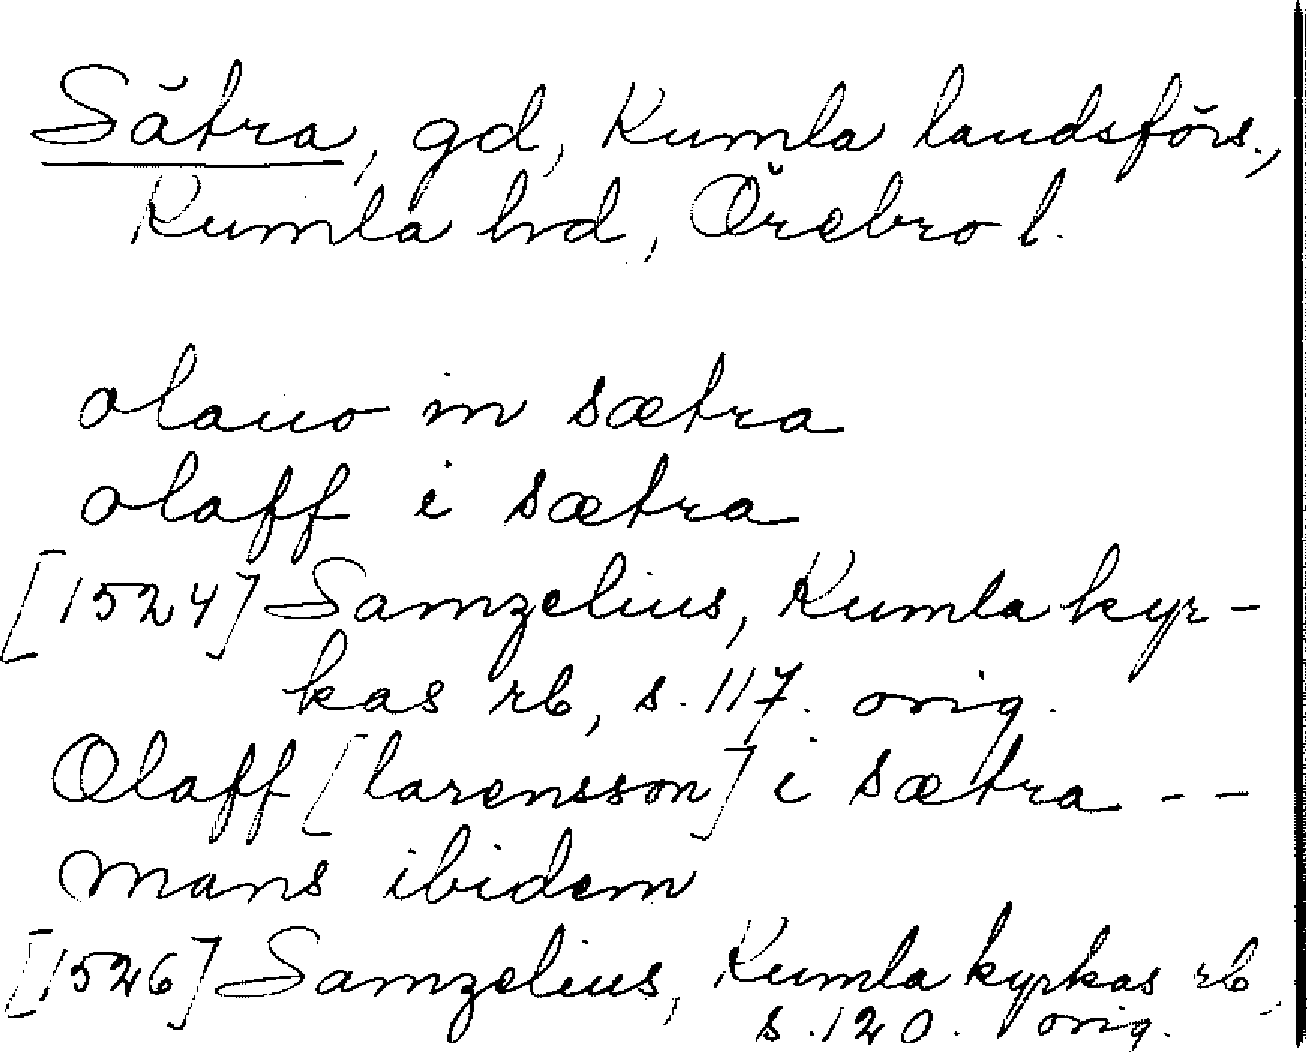 Sätra, gd, Kumla landsförs.,
Kumla hd, Örebro l.
olauo in sætra
olaff i sætra
[1524] Samzelius, Kumla kyr-
kas rb, s. 117. orig.
Olaff [larensson] i sætra - -
mans ibidem
[1526] Samzelius, Kumla kyrkas rb,
s. 120. orig.